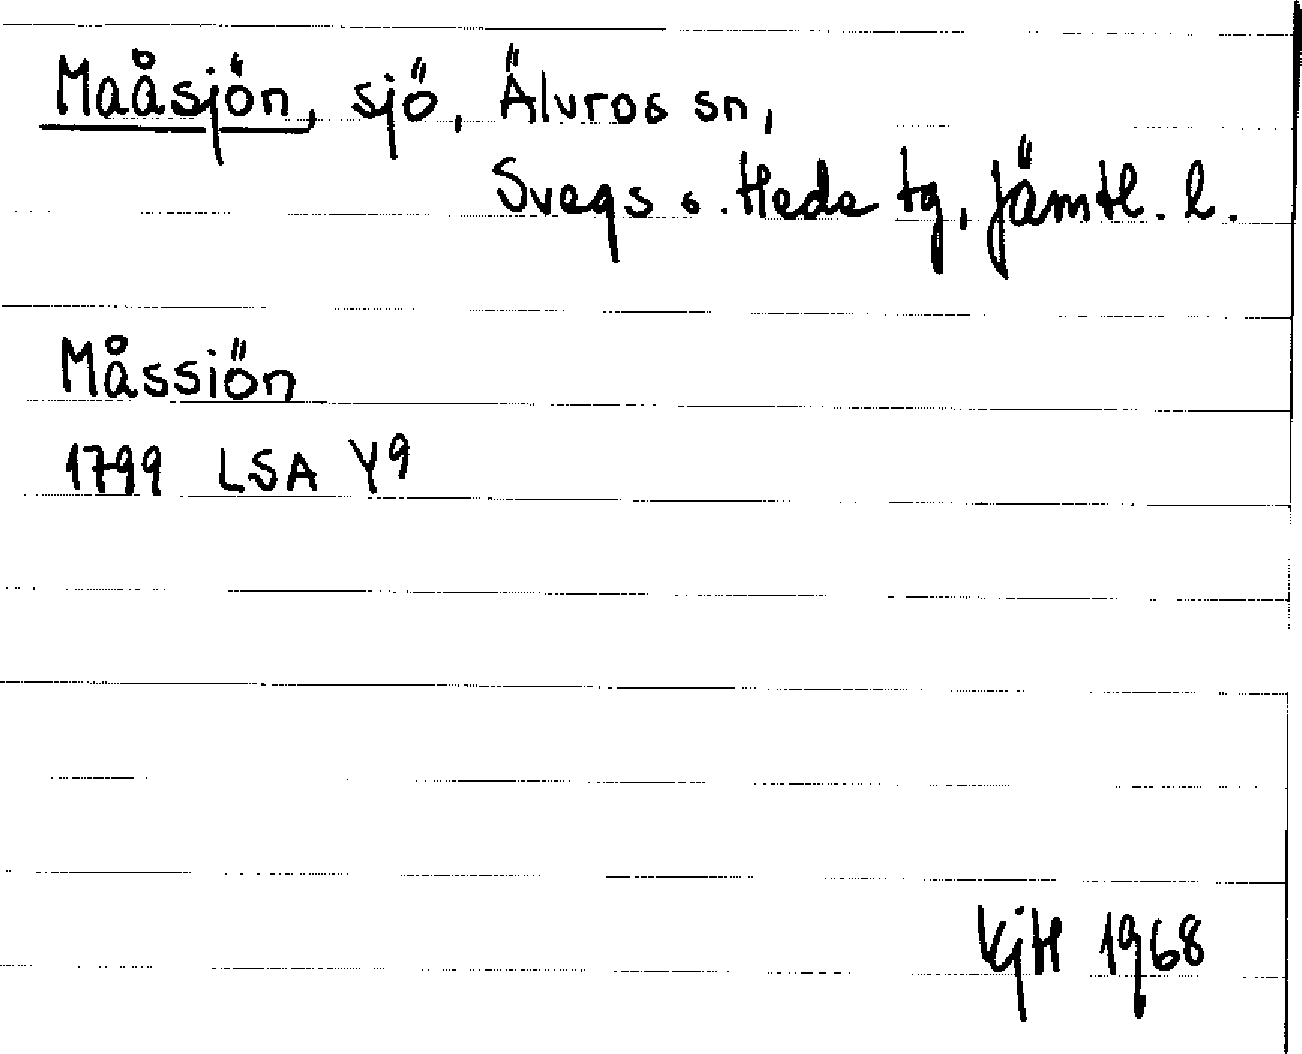 Maåsjön, sjö, Älvros sn,
Svegs o. Heds tg, Jämtl. l.
Måssiön
1799 LSA Y9
KjH 1968